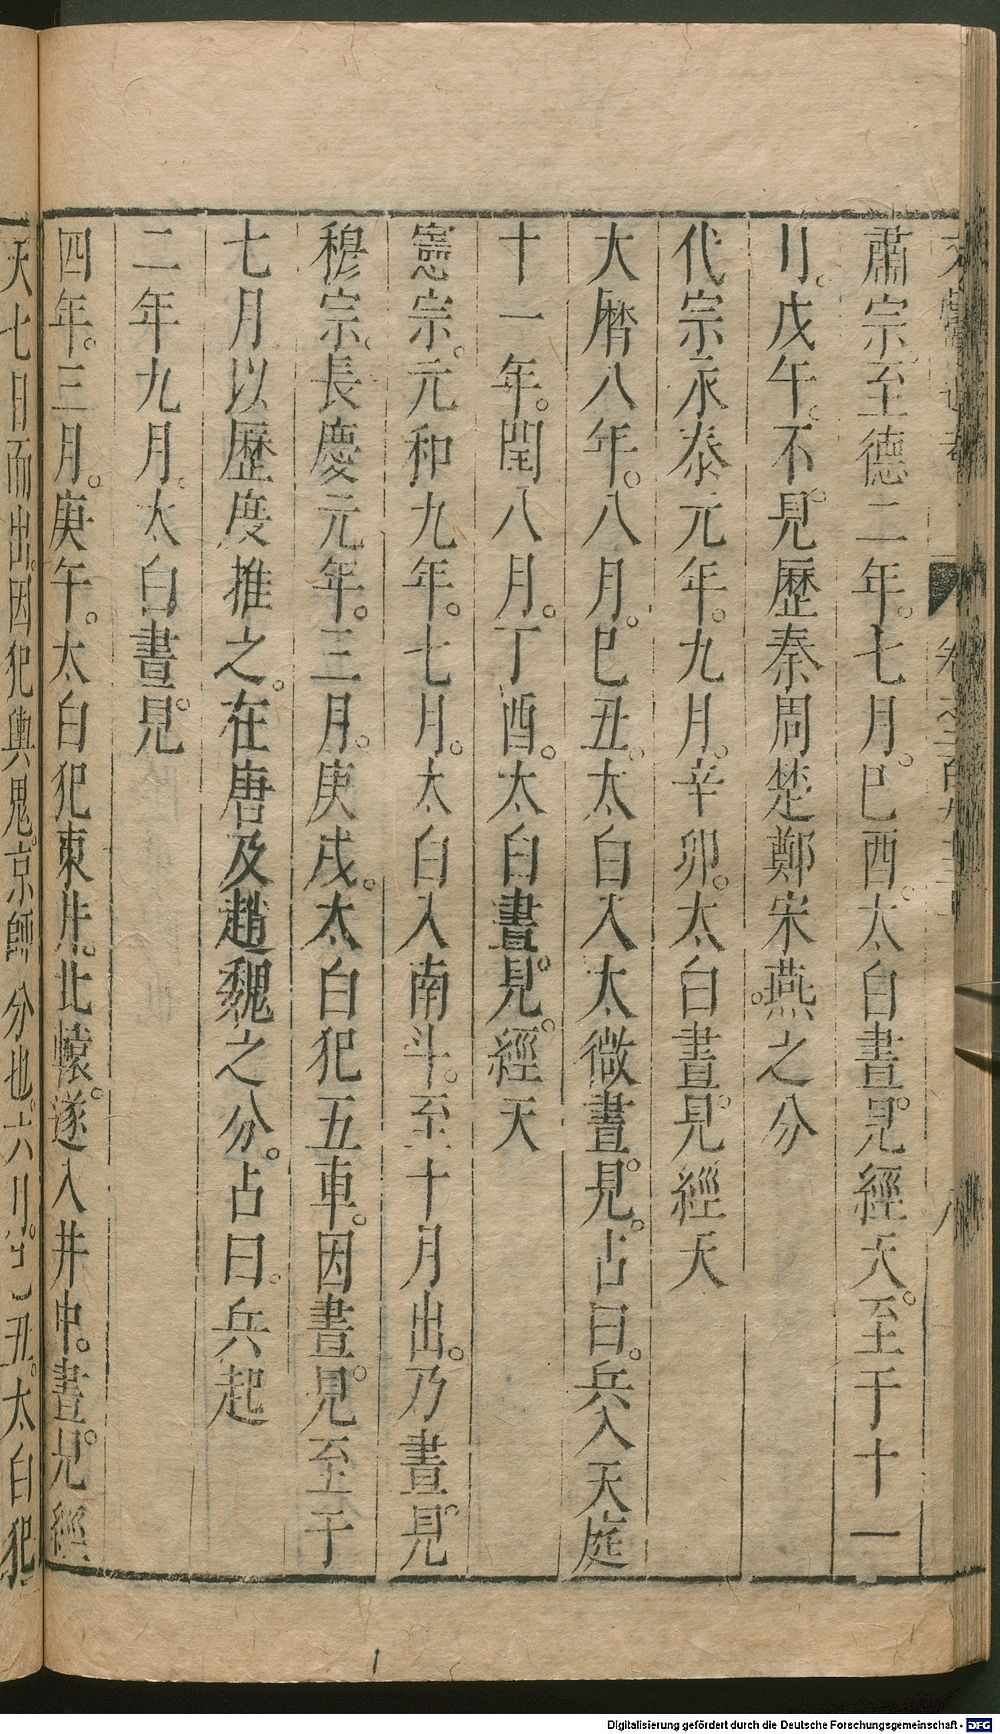 肅宗至德二年七月巳酉太白晝見經天至于十一
月戊午不見歷秦周楚鄭宋燕之分
代宗永泰元年九月辛卯太白晝見經天
大曆八年八月巳丑太白入太微晝見占曰兵入天庭
十一年閏八月丁酉太白晝見經天
憲宗元和九年七月太白入南斗至十月出乃晝見
穆宗長慶元年三月庚戌太白犯五車因晝見至于
七月以歷度推之在唐及趙魏之分占曰兵起
二年九月太白晝見
四年三月庚午太白犯東井北轅遂入井中晝見經
天七日而出因犯輿鬼京師分也六月乙丑太白犯
卷之二百九十三
八
1
Digitalisierung gefördert durch die Deutsche Forschungsgemeinschaft - DFG